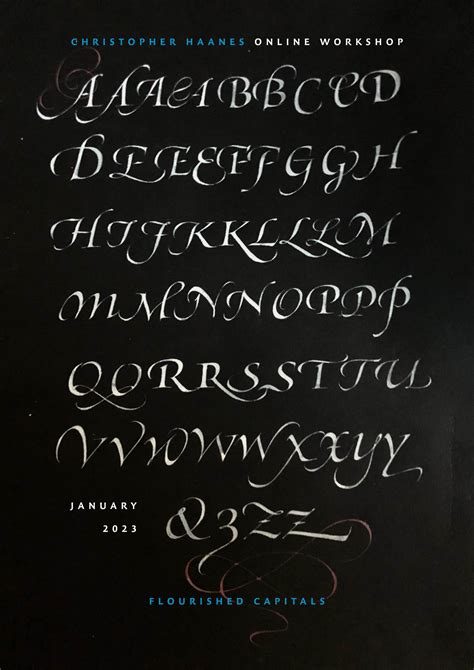 CHRISTOPHER HAANES ONLINE WORKSHOP
AAAABBCCD
DEEEFFGGH
HIJKKLLLM
MMNNOPPP
QQRRSSTTU
VVWWXXYY
JANUARY
& 3ZZ
2023
FLOURISHED CAPITALS